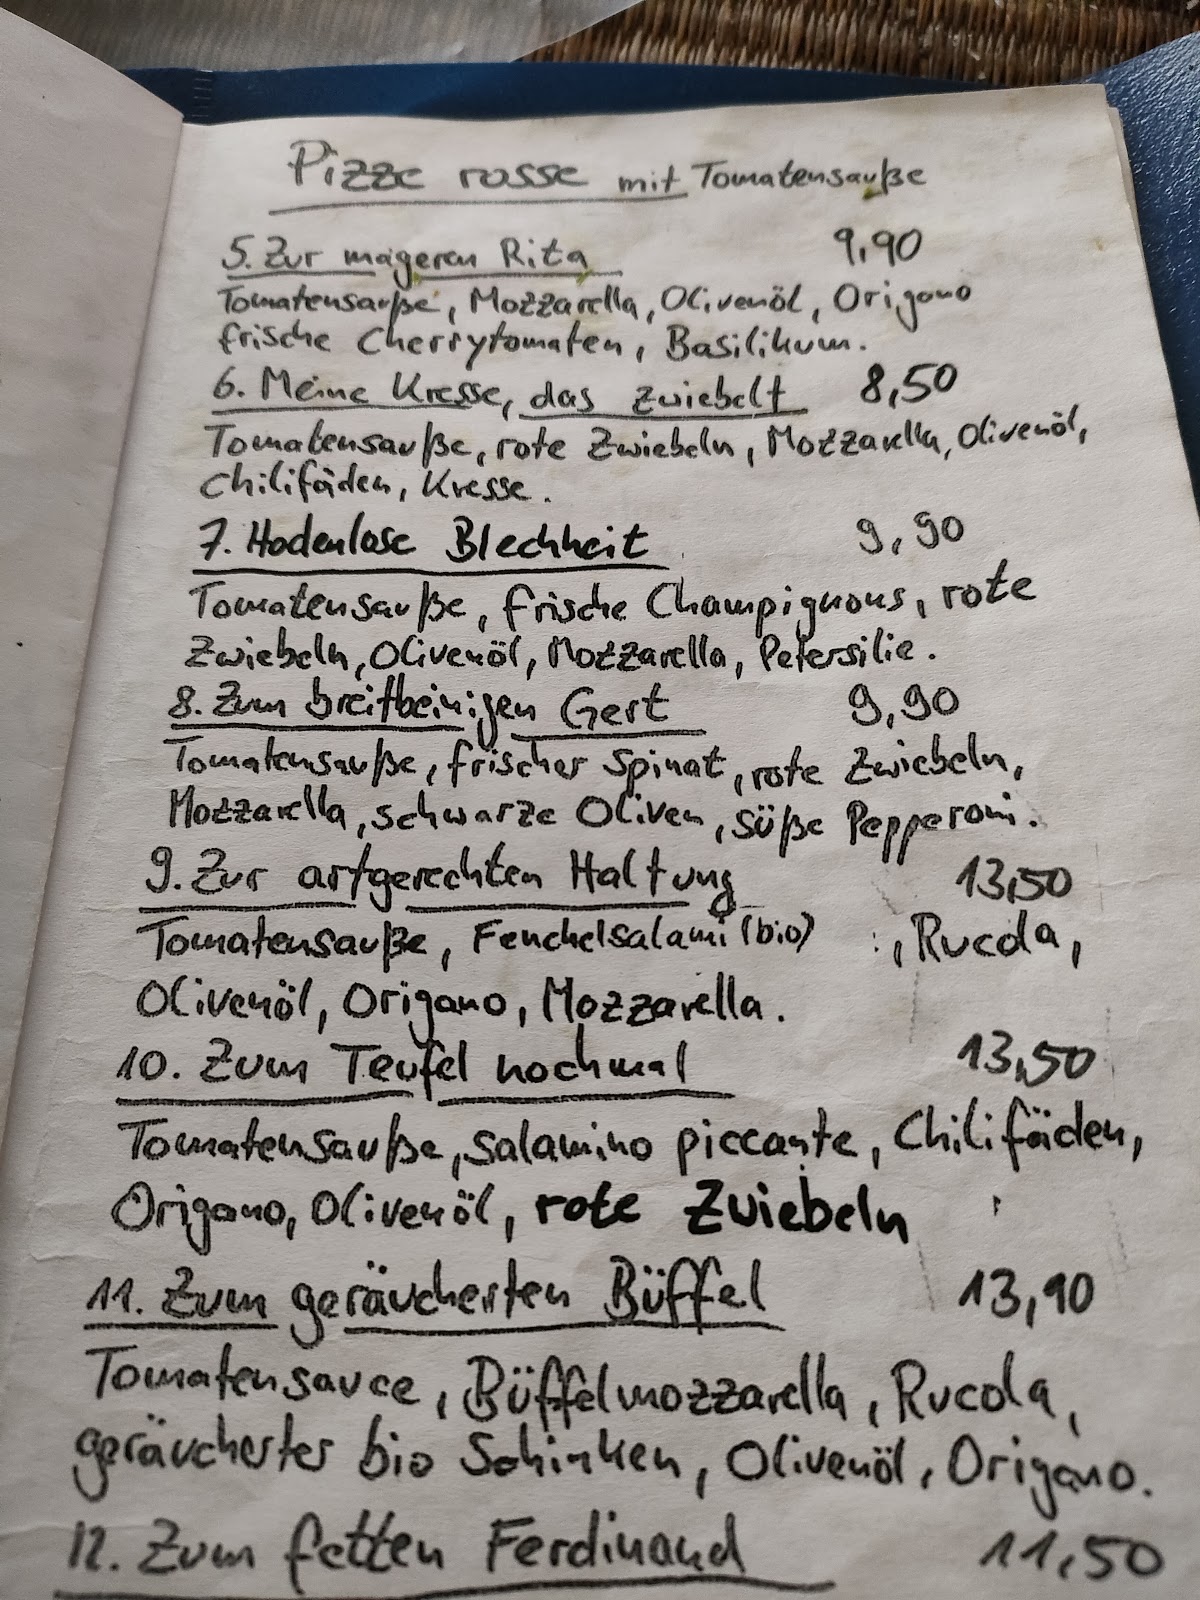 Pizze rosse mit Tomatensauße
5. Zur mageren Rita 9,90
Tomatensauße, Mozzarella, Olivenöl, Origano
frische Cherrytomaten, Basilikum.
6. Meine Kresse, das zwiebelt 8,50
Tomatensauße, rote Zwiebeln, Mozzarella, Olivenöl,
Chilifäden, Kresse.
7. Hodenlose Blechheit 9,90
Tomatensauße, frische Champignons, rote
Zwiebeln, Olivenöl, Mozzarella, Petersilie.
8. Zum breitbeinigen Gert 9,90
Tomatensauße, frischer Spinat, rote Zwiebeln,
Mozzarella, schwarze Oliven, süße Pepperoni.
9. Zur artgerechten Haltung 13,50
Tomatensauße, Fenchelsalami (bio) , Rucola,
Olivenöl, Origano, Mozzarella.
10. Zum Teufel nochmal 13,50
Tomatensauße, Salamino piccante, Chilifäden,
Origano, Olivenöl, rote Zwiebeln
11. Zum geräucherten Büffel 13,90
Tomatensauce, Büffelmozzarella, Rucola,
geräucherter bio Schinken, Olivenöl, Origano.
12. Zum fetten Ferdinand 11,50